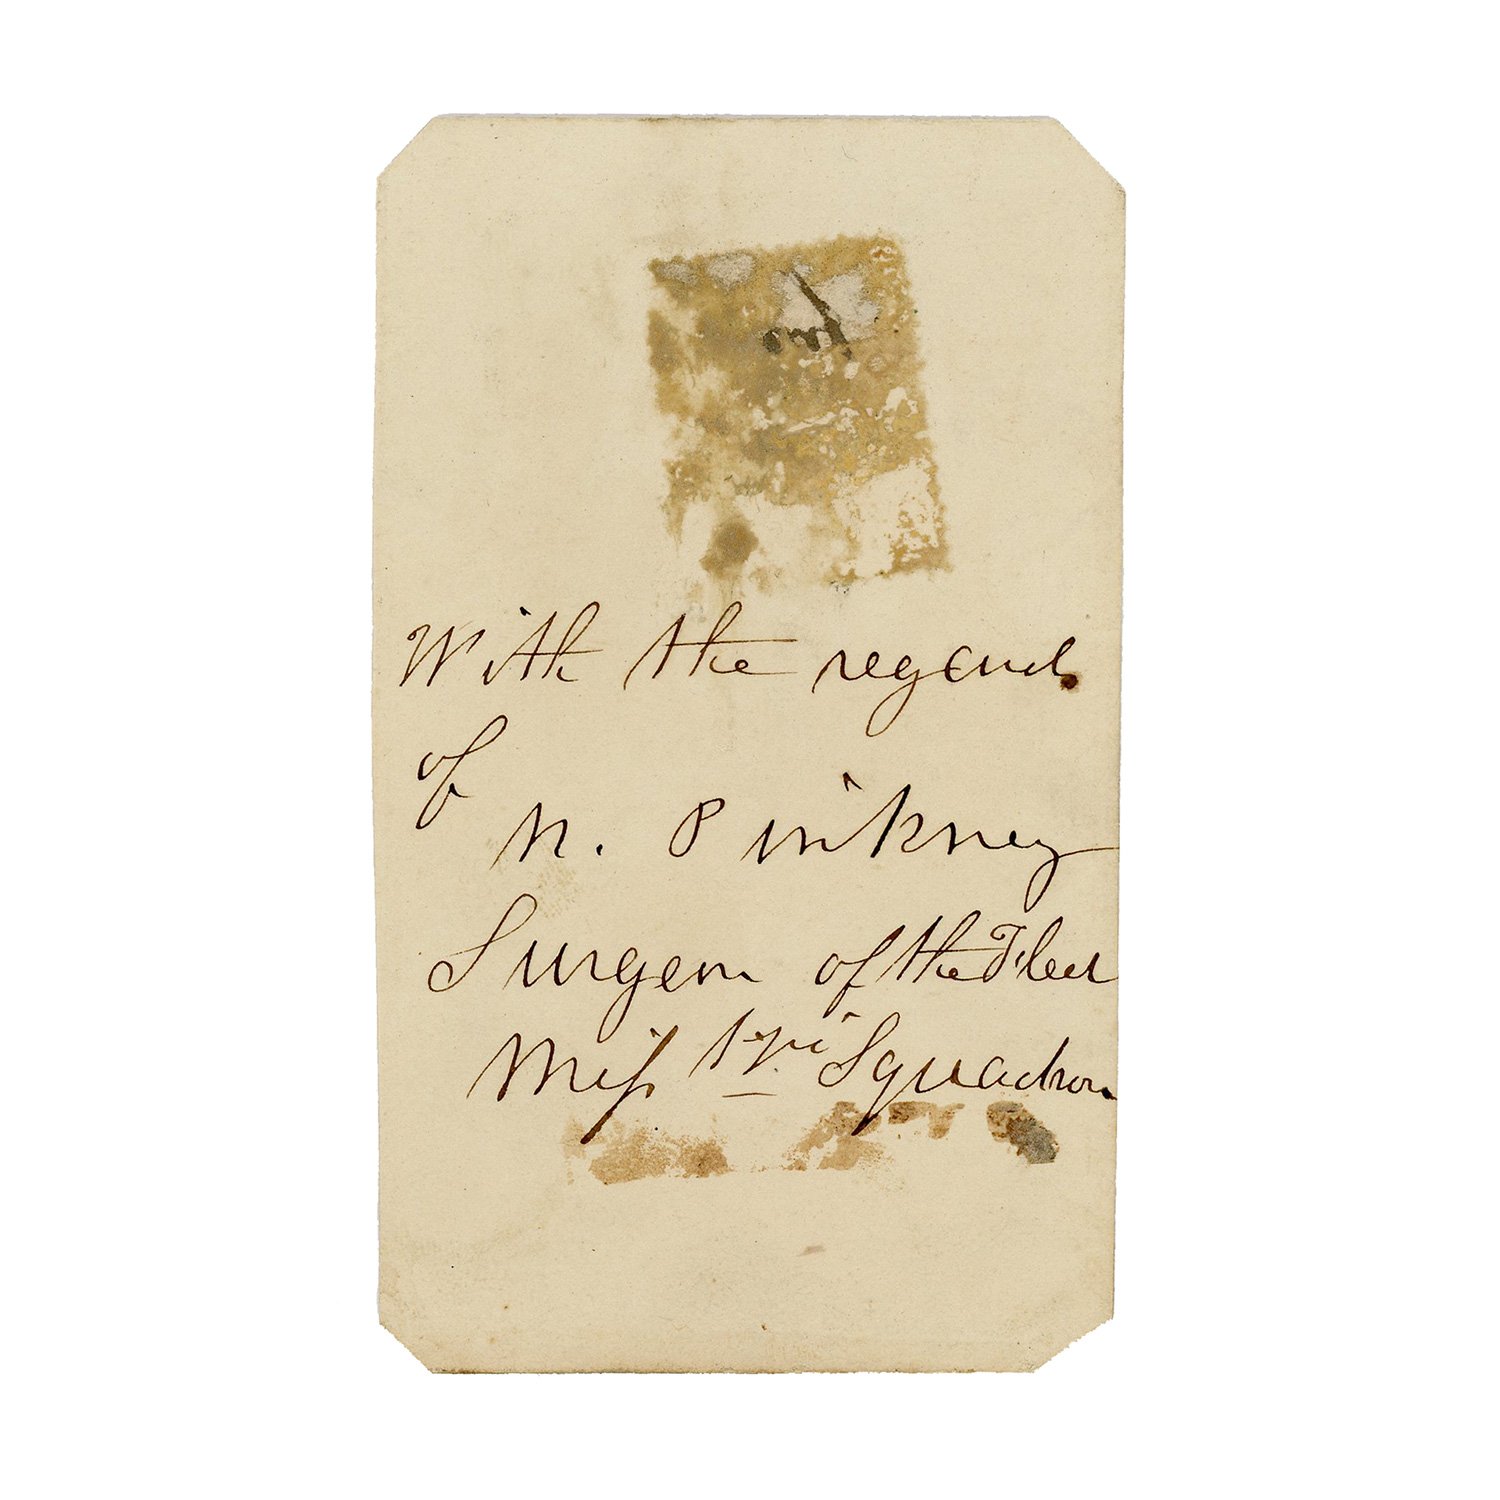 With the regards
of
N. Pinkney
Surgeon of the Fleet
Mississippi Squadron